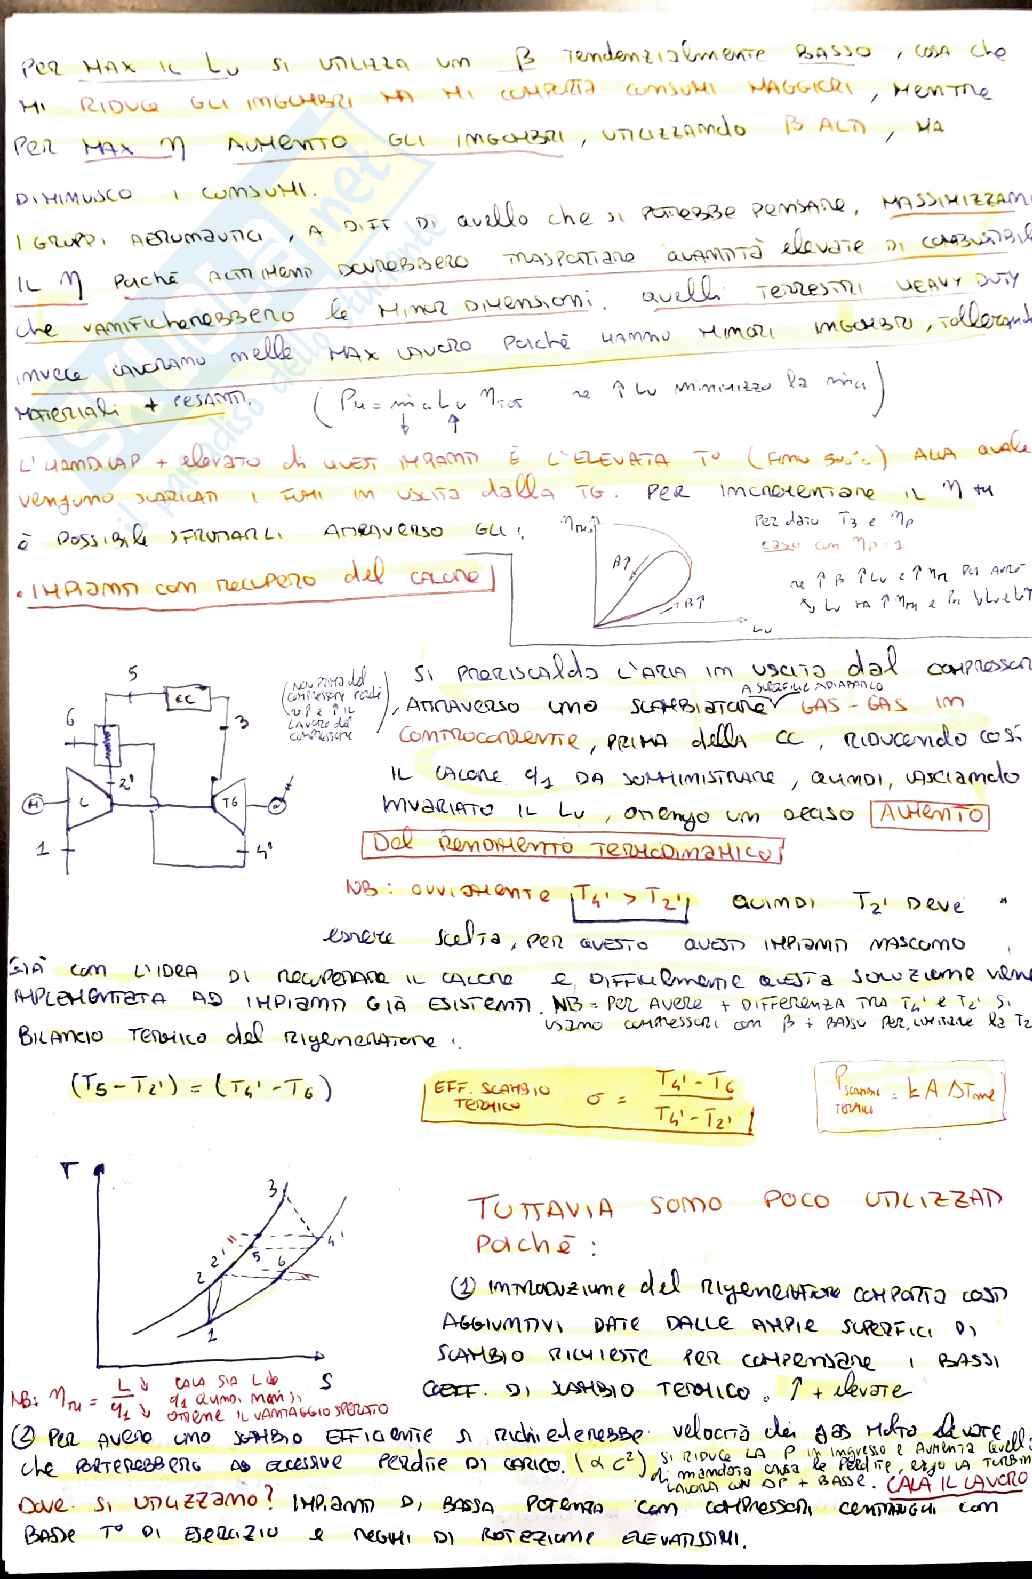 PER MAX IL Lu SI UTILIZZA UN β TENDENZIALMENTE BASSO, COSA CHE
MI RIDUCE GLI INGOMBRI MA MI COMPORTA CONSUMI MAGGIORI, MENTRE
PER MAX η AUMENTO GLI INGOMBRI, UTILIZZANDO β ALTI, MA
DIMINUISCO I CONSUMI.
I GRUPPI AERONAUTICI, A DIFF DI QUELLO CHE SI POTREBBE PENSARE, MASSIMIZZANO
IL η PERCHÉ ALTRIMENTI DOVREBBERO TRASPORTARE QUANTITÀ ELEVATE DI COMBUSTIBILE
CHE VANIFICHEREBBERO LE MINOR DIMENSIONI. QUELLI TERRESTRI HEAVY DUTY
INVECE LAVORANO NELLE MAX LAVORO PERCHÉ HANNO MINORI INGOMBRI, TOLLERANDO
MATERIALI + PESANTI. (Pu = ma Lu ηTOT se ↑ Lu MINIMIZZO la ma)
L'HANDICAP + elevato di QUESTI IMPIANTI È L'ELEVATA T° (FINO 500°C) ALLA QUALE
VENGONO SCARICATI I FUMI IN USCITA DALLA TG. PER INCREMENTARE IL η TH
È POSSIBILE SFRUTTARLI ATTRAVERSO GLI:
• IMPIANTI CON RECUPERO del CALORE
ηTH ↑
β↑
β↑
Lu
PER dato T3 e ηp
CASO CON ηp=1
se ↑ β ↑ Lu e ↑ ηTH
SI PRERISCALDA L'ARIA IN USCITA dal COMPRESSORE
(NON PRIMA del COMPRESSORE
LAVORO del
COMPRESSORE)
, ATTRAVERSO UNO SCAMBIATORE A SUPERFICIE GAS-GAS IN
CONTROCORRENTE, PRIMA della CC, RIDUCENDO COSÌ
IL CALORE q1 DA SOMMINISTRARE, QUINDI, LASCIANDO
INVARIATO IL Lu, OTTENGO UN DECISO AUMENTO
Del RENDIMENTO TERMODINAMICO
5
CC
6
3
2'
M
C
TG
1
4'
NB: OVVIAMENTE T4' > T2' QUINDI T2' DEVE
ESSERE SCELTA, PER QUESTO QUESTI IMPIANTI NASCONO
GIÀ CON L'IDEA DI RECUPERARE IL CALORE E DIFFICILMENTE QUESTA SOLUZIONE VIENE
IMPLEMENTATA AD IMPIANTI GIÀ ESISTENTI. NB = PER AVERE + DIFFERENZA TRA T4' E T2' SI
USANO COMPRESSORI CON β + BASSO PER LIMITARE la T2
BILANCIO TERMICO del RIGENERATORE:
(T5 - T2') = (T4' - T6)
EFF. SCAMBIO TERMICO σ = T4' - T6 / T4' - T2'
PSCAMBI TERMICI = k A ΔTme
T
3
4'
2'
5
2
6
1
S
TUTTAVIA SONO POCO UTILIZZATI
PERCHÉ:
(1) INTRODUZIONE del RIGENERATORE COMPORTA COSTI
AGGIUNTIVI DATE DALLE AMPIE SUPERFICI DI
SCAMBIO RICHIESTE PER COMPENSARE I BASSI
COEFF. DI SCAMBIO TERMICO. ↑ + elevate
NB: ηTH = L↓ / q1↓ CALA SIA L CHE
q1 QUINDI NON SI
OTTIENE IL VANTAGGIO SPERATO
(2) PER AVERE UNO SCAMBIO EFFICIENTE SI RICHIEDEREBBE VELOCITÀ dei GAS MOLTO ELEVATE
CHE PORTEREBBERO AD ECCESSIVE PERDITE DI CARICO. (∝ c²) SI RIDUCE LA P IN INGRESSO E AUMENTA QUELLA
di mandata causa le PERDITE, ERGO LA TURBINA
LAVORA CON ΔP + BASSE. CALA IL LAVORO
DOVE SI UTILIZZANO? IMPIANTI DI BASSA POTENZA CON COMPRESSORI CENTRIFUGHI CON
BASSE T° DI ESERCIZIO E REGIMI DI ROTAZIONE ELEVATISSIMI.